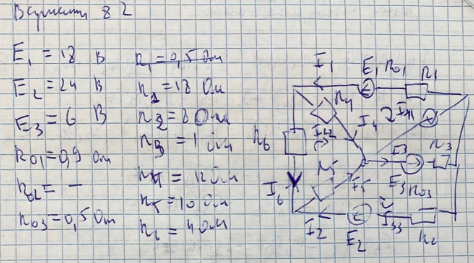 Вариант 82
E₁ = 18 В
E₂ = 24 В
E₃ = 6 В
R₀₁ = 0,9 Ом
R₀₂ = —
R₀₃ = 0,5 Ом
R₁ = 18 Ом
R₂ = 8 Ом
R₃ = 1 Ом
R₄ = 12 Ом
R₅ = 10 Ом
R₆ = 4 Ом
I₁ E₁ R₀₁ R₁
R₄
R₆ I₂₂ I₄
E₃ R₃
R₅ I₅ E₃ R₀₃
I₆
I₂ E₂ I₃₃ R₂